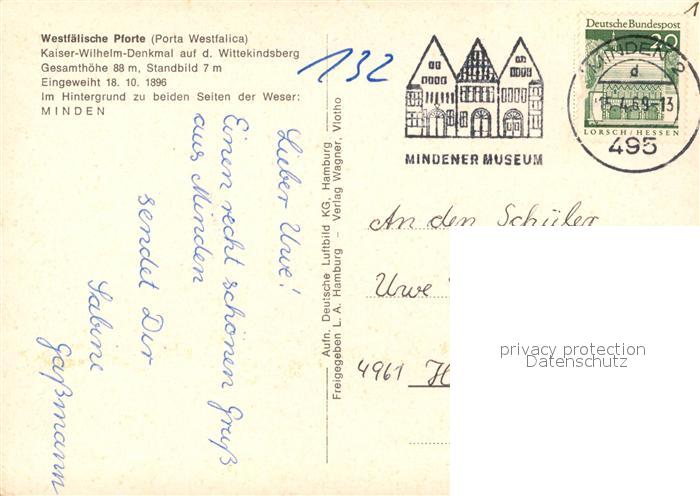 Westfälische Pforte (Porta Westfalica)
Kaiser-Wilhelm-Denkmal auf d. Wittekindsberg
Gesamthöhe 88 m, Standbild 7 m
Eingeweiht 18. 10. 1896
Im Hintergrund zu beiden Seiten der Weser:
MINDEN
132
1
MINDENER MUSEUM
Deutsche Bundespost
20
LORSCH/HESSEN
MINDEN 2
d
15.4.69-13
495
Lieber Uwe!
Einen recht schönen Gruß
aus Minden
sendet Dir
Sabine
Gaßmann
Aufn. Deutsche Luftbild KG, Hamburg
Freigegeben L. A. Hamburg – Verlag Wagner, Vlotho
An den Schüler
Uwe
4961 H
privacy protection
Datenschutz